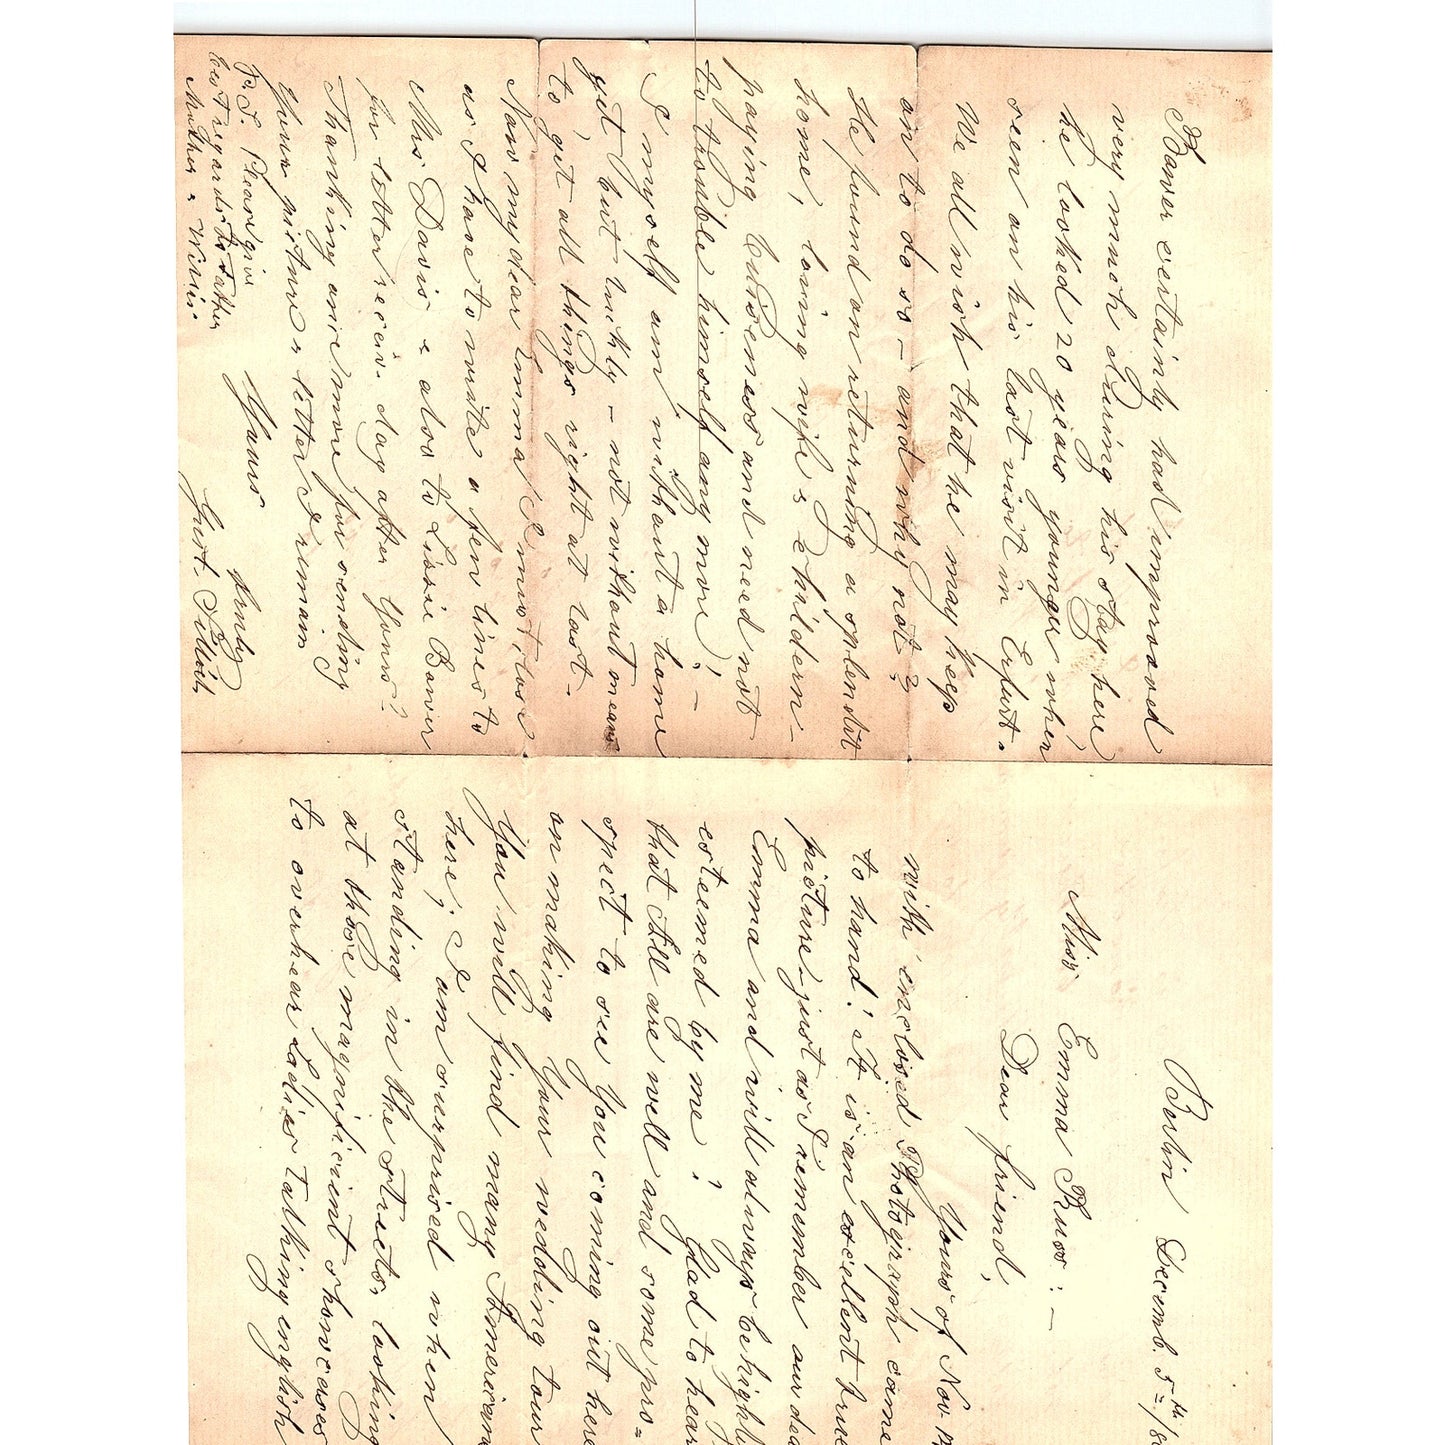 Berlin Decemb. 5th /8
Miss Emma Russ: –
Dear friend,
Yours of Nov
with inclosed Photograph came
to hand! It is an excellent true
picture just as I remember our dea
Emma and will always be highl
esteemed by me! Glad to hear
that All are well and some pro=
spect to see You coming out here
on making Your wedding tour
You will find many American
here; I am surprised when
standing in the streets, looking
at those magnificient showcases
to overhear Ladies talking english
Bower certainly had improved
very much during his stay here
he looked 20 years younger when
seen on his last visit in Erfurt.
We all wish that he may keep
on to do so – and why not?
He found on returning a splendit
home, loving wife & childern –
paying buisenes and need not
to trouble himself any more! –
I myself am without a home
yit but lukly – not without means
to git all things right at last –
Now my dear Emma I must close
as I have to write a few lines to
Mrs Davis & also to Lissie Bower
for letter receiv. day after Yours?
Thanking once more for sending
Your picture & letter I remain
Yours truly
Gust.
P.S. Please give
best regards to father
Mother & Willie.